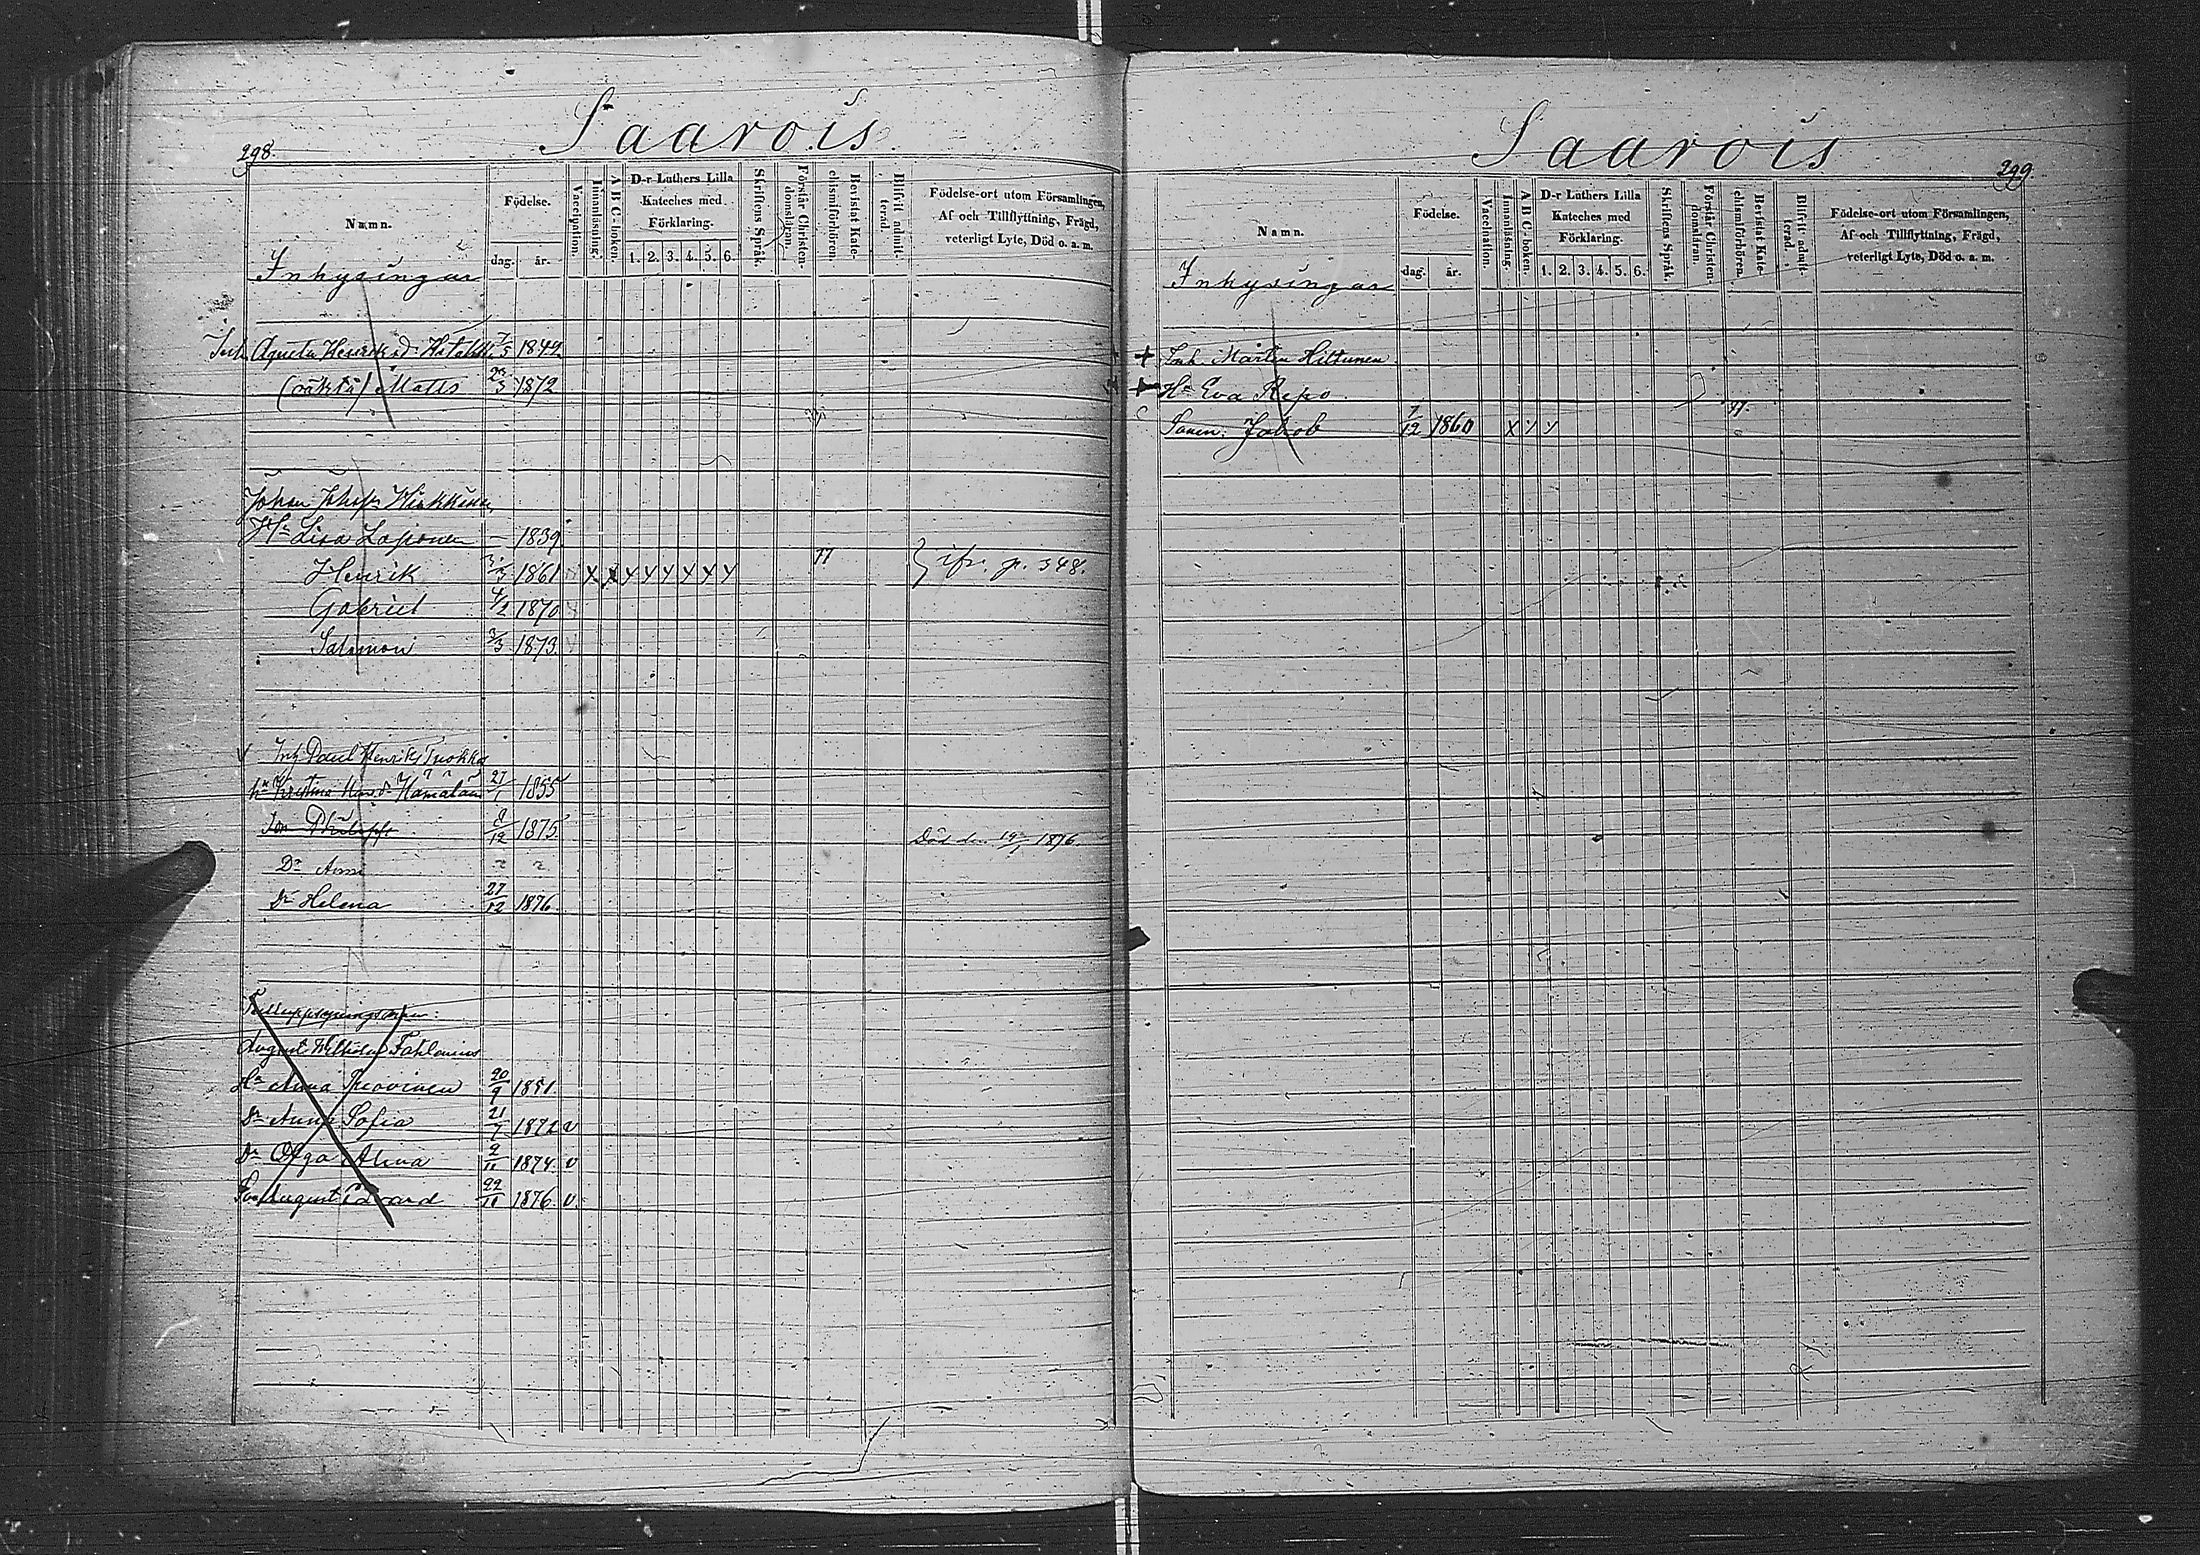 298.
Saarois.
Namn.
Födelse.
dag. år.
Vaccination.
Innanläsning.
A B C-boken.
D-r Luthers Lilla
Kateches med
Förklaring.
1. 2. 3. 4. 5. 6.
Skriftens Språk.
Förstår Christen-
domsläran.
Bevistat Kate-
chismiförhören.
Blifvit admit-
terad.
Födelse-ort utom Församlingen,
Af och Tillflyttning, Frägd,
veterligt Lyte, Död o. a. m.
Inhysingar
Inh. Agneta Henriksd: 7/5 1849
(oäkta) Mats 1872
Johan
Hu Lisa Laponen — 1839.
Henrik 1861 X X Y Y Y Y Y Y 77 } jfr. p. 348.
Gabriel 4/2 1870
Salomon 3/3 1873
Inh Paul Henriks Tuokko
hu Kristina 27/1 1855
Son Philipp 8/12 1875 Död den 1876.
Dr Anni
Dr Helena 27/12 1876.
August Wilhelm Fahlenius
Hu Anna 20/9 1851.
Dr Anna Sofia 21/7 1872 v
Dr Olga Alina 2/11 1874. v
Son August Edvard 22/11 1876. v.
299.
Saarois
Namn.
Födelse.
dag. år.
Vaccination.
Innanläsning.
A B C-boken.
D-r Luthers Lilla
Kateches med
Förklaring.
1. 2. 3. 4. 5. 6.
Skriftens Språk.
Förstår Christen-
domsläran.
Bevistat Kate-
chismiförhören.
Blifvit admit-
terad.
Födelse-ort utom Församlingen,
Af och Tillflyttning, Frägd,
veterligt Lyte, Död o. a. m.
Inhysingar
+ Inh. Mårten Hiltunen
+ Hu Eva Repo
Sonen: Jakob 7/12 1860 X Y Y 77.